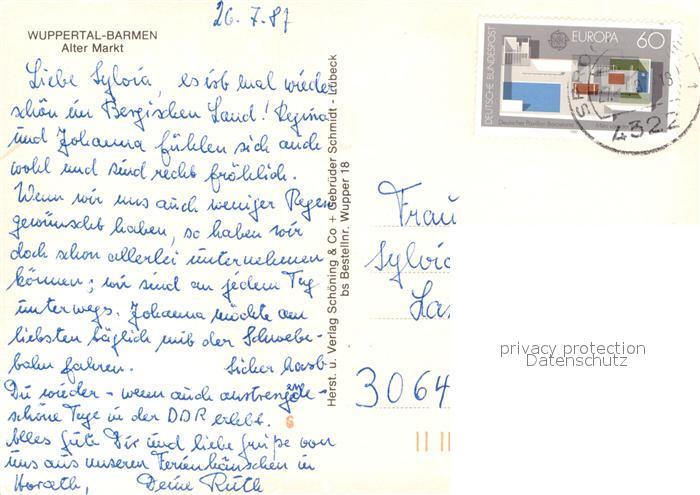 26.7.87
WUPPERTAL-BARMEN
Alter Markt
Liebe Sylvia, es ist mal wieder
schön im Bergischen Land! Regina
und Johanna fühlen sich auch
wohl und sind recht fröhlich.
Wenn wir uns auch weniger Regen
gewünscht haben, so haben wir
doch schon allerlei unternehmen
können; wir sind an jedem Tag
unterwegs. Johanna möchte am
liebsten täglich mit der Schwebe-
bahn fahren. Sicher hast
Du wieder - wenn auch anstrengende -
schöne Tage in der DDR erlebt.
Alles Gute Dir und liebe Grüße von
uns aus unserem Ferienhäuschen in
Horath, Deine Ruth
6
Herst. u. Verlag Schöning & Co + Gebrüder Schmidt - Lübeck
bs Bestellnr. Wupper 18
DEUTSCHE BUNDESPOST
EUROPA 60
Deutscher Pavillon Barcelona
4322
Frau
Sylvia
3064
privacy protection
Datenschutz